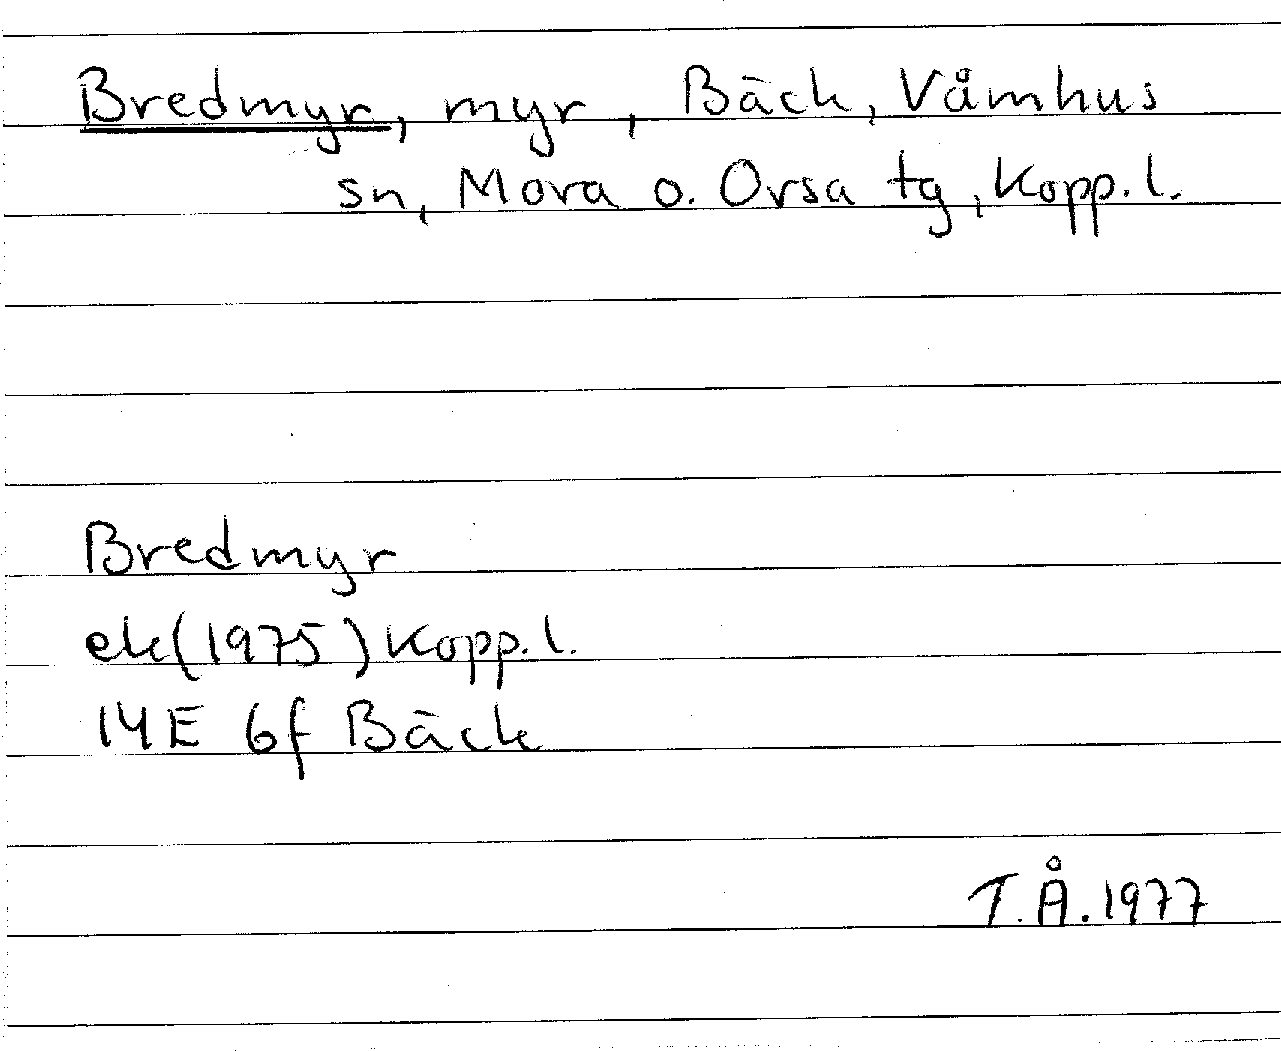 Bredmyr, myr, Bäck, Våmhus
sn, Mora o. Orsa tg, Kopp. l.
Bredmyr
ek(1975) Kopp. l.
14E 6f Bäck
T.Å. 1977